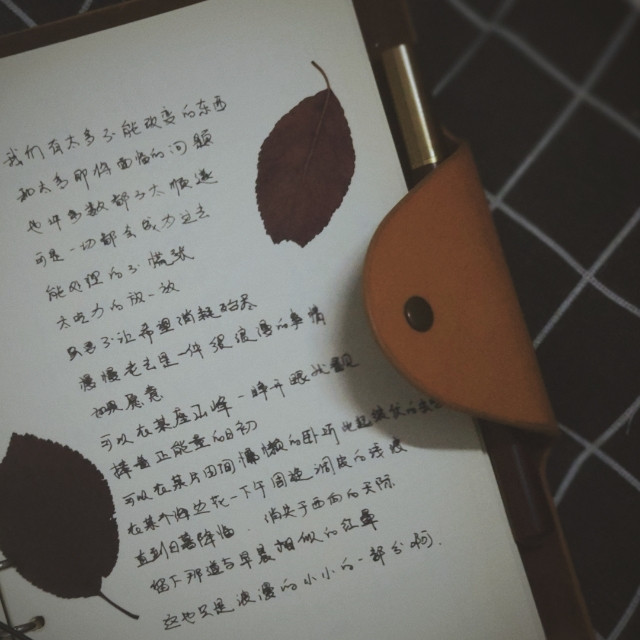 我们有太多不能改变的东西
和太多即将面临的问题
也许多数都不太顺遂
可是一切都在成为过去
能处理的不慌张
太吃力的放一放
只要不让希望消耗殆尽
慢慢老去是一件很浪漫的事情
如果愿意
可以在某座山峰一睁开眼就看见
携着正能量的日初
可以在某片田间慵懒的卧听
在某个拂
直到日暮降临 消失于西面的天际
留下那道与早晨相似的红晕
这也只是浪漫的小小的一部分啊.